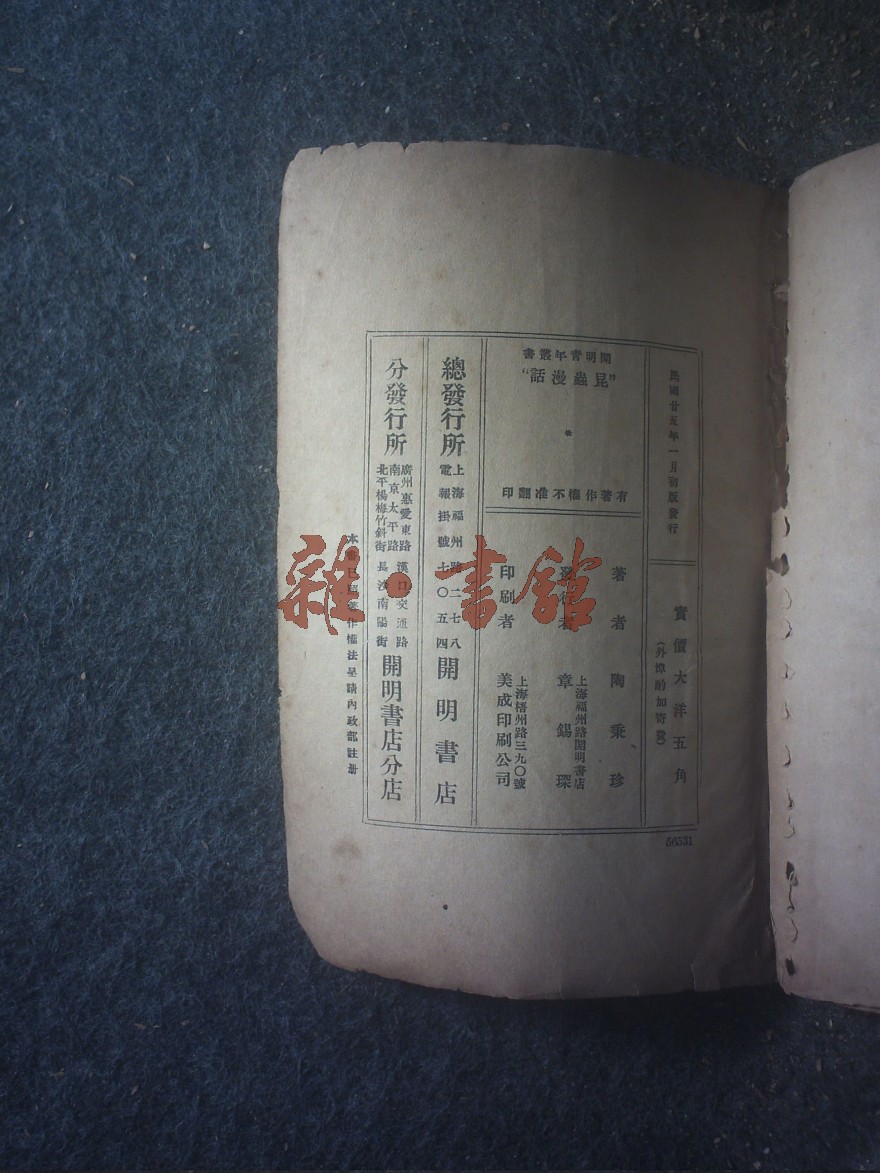 民國廿五年一月初版發行
實價大洋五角
(外埠酌加寄費)
開明青年叢書
“昆蟲漫話”
有著作權不准翻印
著者 陶乘珍
發行者 章錫琛
上海福州路開明書店
印刷者 美成印刷公司
上海梧州路三九〇號
總發行所 上海福州路二七八 開明書店
電報掛號七〇五四
分發行所 開明書店分店
廣州惠愛東路 漢口交通路
南京太平路
北平楊梅竹斜街 長沙南陽街
本書已照著作權法呈請內政部註冊
56531
雜·書館